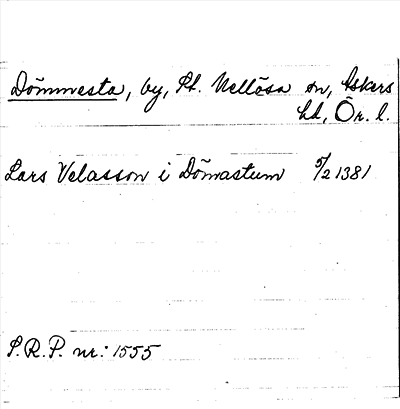 Dömmesta, by, St. Mellösa sn, Askers
hd, Ör. l.
Lars Velasson i Dömastum 5/2 1381
S.R.P. nr: 1555